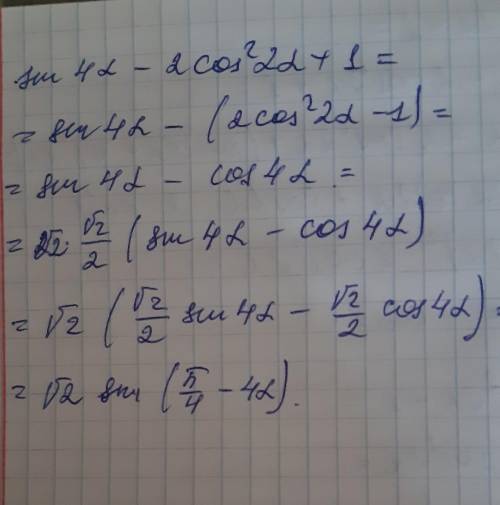 sin 4α − 2cos²2α + 1 =
= sin 4α − (2cos²2α − 1) =
= sin 4α − cos 4α =
= √2 · √2/2 (sin 4α − cos 4α)
= √2 (√2/2 sin 4α − √2/2 cos 4α) =
= √2 sin (π/4 − 4α).